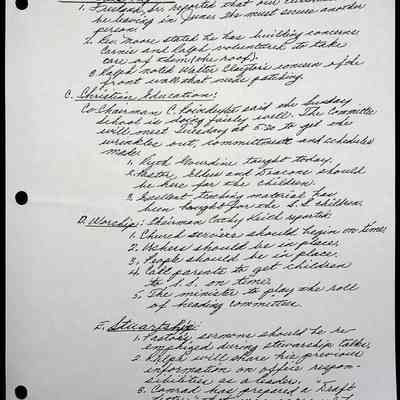 1. Freeland, Sr. reported that our
be leaving in June. She must secure another
person.
2. Ken Moore stated he has building concerns.
Carnie and Ralph volunteered to take
care of them (the roof).
3. Ralph noted Walter Clayton's concern of the
front wall that needs patching.
C. Christian Education:
Co-Chairman C. Poindexter said the Sunday
School is doing fairly well. The Committee
will meet Tuesday at 5:30 to get the
wrinkles out, committees and schedules
made.
1. Gourdine taught today.
2. Pastor, Elders and Deacons should
be here for the children.
3. Excellent teaching material has
been bought for the S.S. children.
D. Worship: Chairman Cathy Reid reported
1. Church services should begin on time.
2. Ushers should be in place.
3. People should be in place.
4. Call parents to get children
to S.S. on time.
5. The minister to play the roll
of heading committee.
E. Stewartship:
1. Pastor's sermons should be re
emphized during stewarship talks.
2. Ralph will share his previous
information on office respon-
sibilities as a leader.
3. Conrad has prepared a "Draft